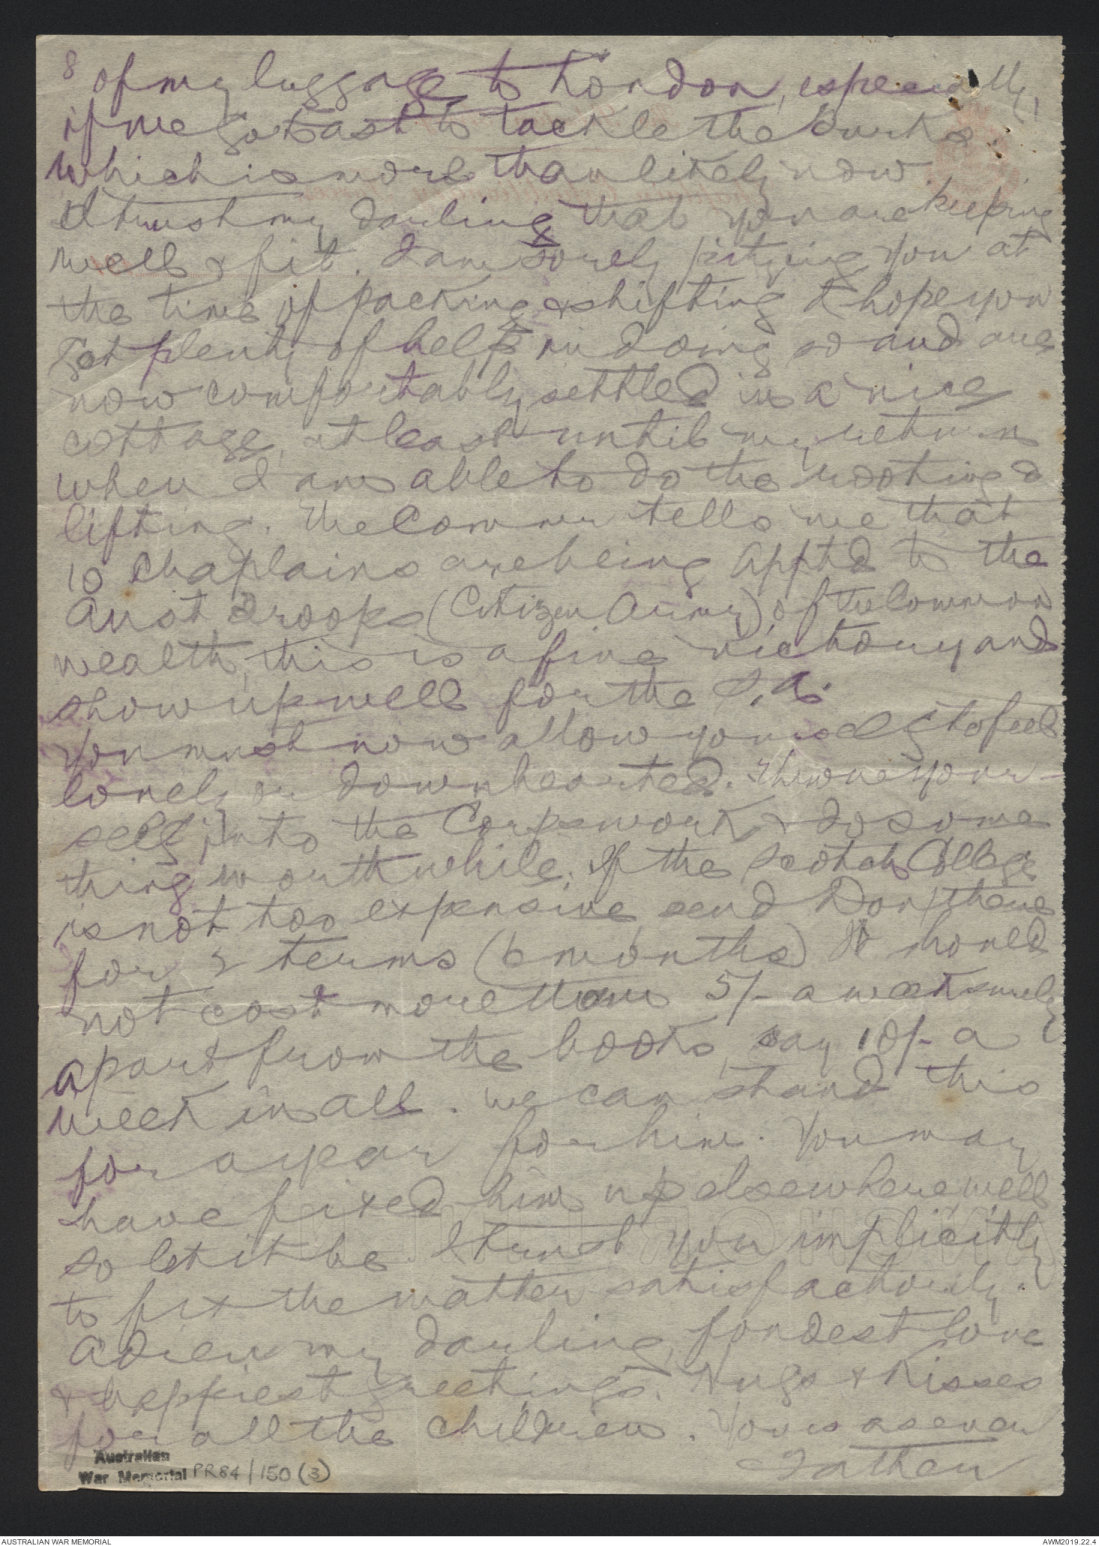 8
of my luggage to London, especially,
if we go East to tackle the Turks.
Which is more than likely now.
I trust my darling that you are keeping
well & fit. I am sorely pitying you at
the time of packing & shifting I hope you
got plenty of help in doing so and are
now comfortably settled in a nice
cottage, at least until my return
when I am able to do the rooting &
lifting. The Commr tells me that
10 Chaplains are being apptd to the
Aust Troops (Citizen Army) of the Common
wealth, this is a fine victory and
show up well for the S.A.
You must now allow yourself to feel
lonely or downhearted. Throw your-
self into the Corps work & do some
thing worth while. If the Scotch College
is not too expensive send Don there
for 2 terms (6 months) It would
not cost more than 5/- a week surely
apart from the books, say 10/- a
week in all. We can stand this
for a year for him. You may
have fixed him up elsewhere, well
so let it be. I trust you implicitly
to fix the matter satisfactorily.
Adieu my darling, fondest love
& happiest greetings. Hugs & Kisses
for all the children. Yours as ever
Father
Australian
War Memorial PR84/150 (3)
AUSTRALIAN WAR MEMORIAL
AWM2019.22.4